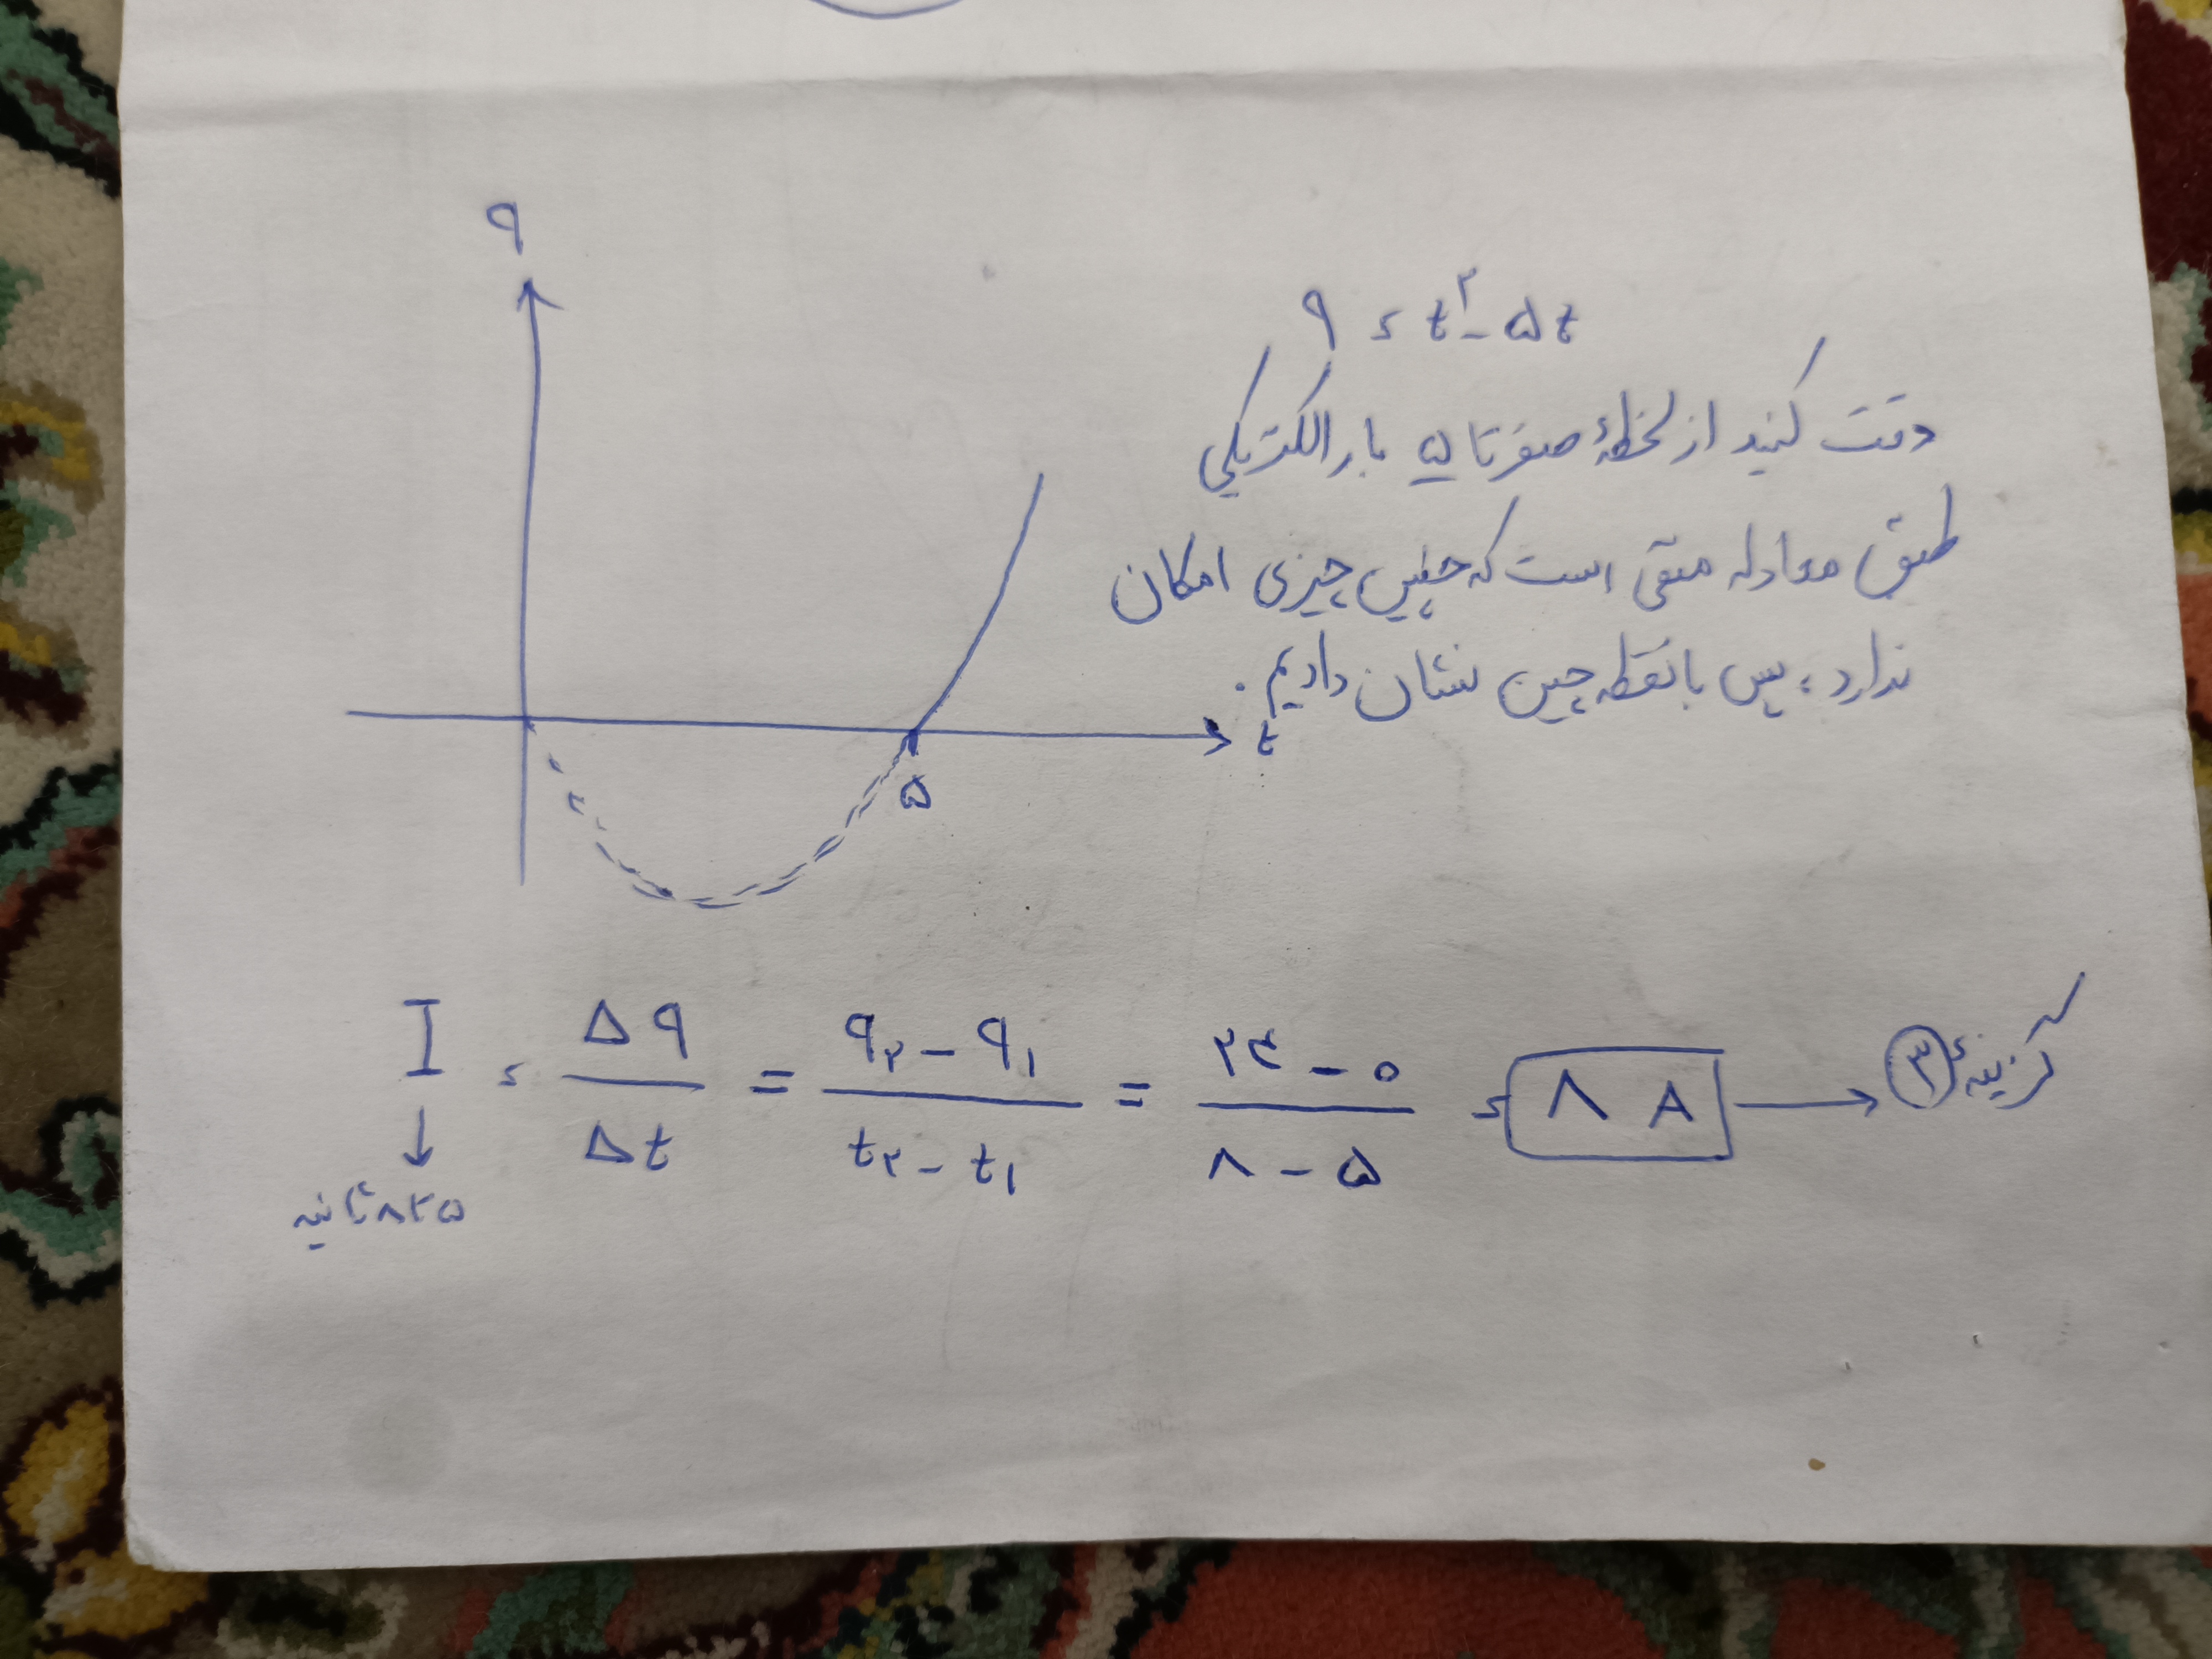 q
q = t² - ۵t
دقت کنید از لحظهٔ صفر تا ۵ بار الکتریکی
طبق معادله منفی است که چنین چیزی امکان
ندارد، پس با نقطه چین نشان دادیم.
t
۵
I = Δq / Δt = q₂ - q₁ / t₂ - t₁ = ۲۴ - ۰ / ۸ - ۵ = ۸ A → گزینهٔ ۳
↓
۵ تا ۸ ثانیه